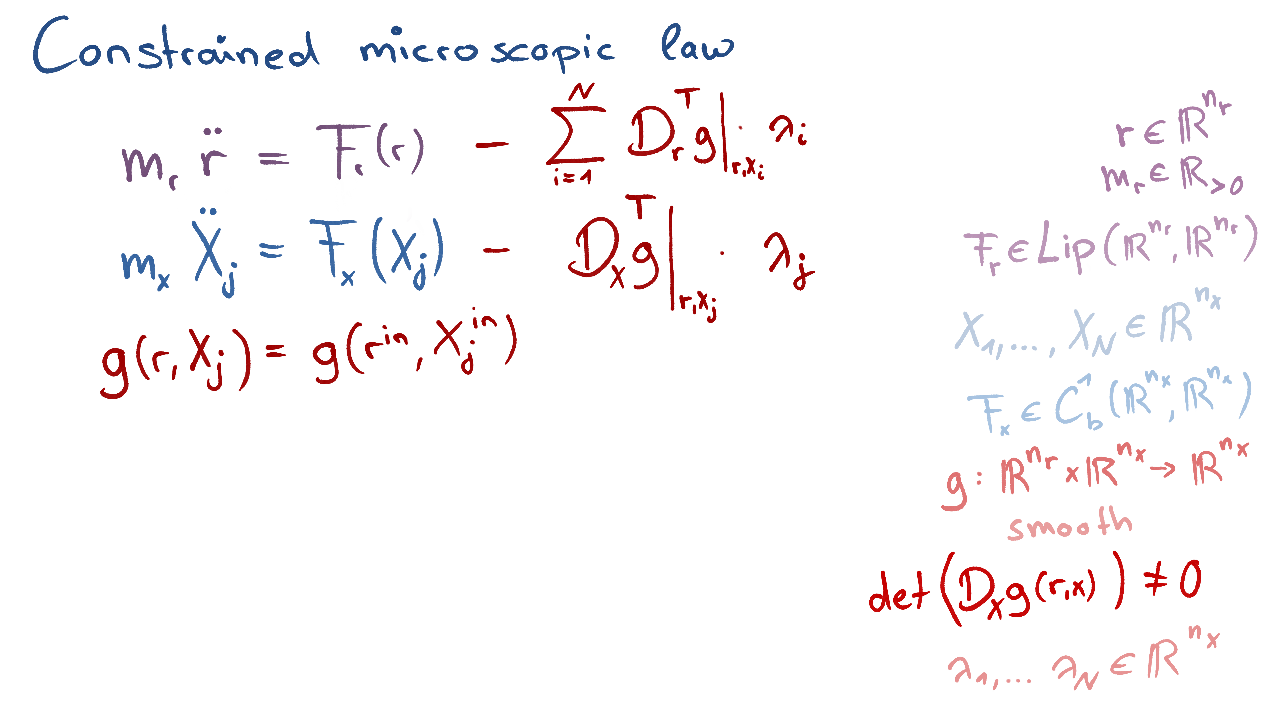 Constrained microscopic law
m_r r̈ = F_r(r) − ∑_{i=1}^{N} D_r^T g|_{r,X_i} · λ_i
m_x Ẍ_j = F_x(X_j) − D_x^T g|_{r,X_j} · λ_j
g(r, X_j) = g(r^{in}, X_j^{in})
r ∈ ℝ^{n_r}
m_r ∈ ℝ_{>0}
F_r ∈ Lip(ℝ^{n_r}, ℝ^{n_r})
X_1, ..., X_N ∈ ℝ^{n_x}
F_x ∈ C_b^1(ℝ^{n_x}, ℝ^{n_x})
g : ℝ^{n_r} × ℝ^{n_x} → ℝ^{n_x}
smooth
det(D_x g(r,x)) ≠ 0
λ_1, ... λ_N ∈ ℝ^{n_x}